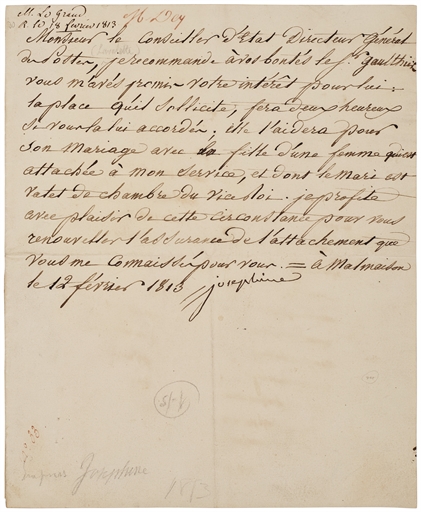 M. Le Grand
R. le 18 février 1813
Monsieur le Conseiller d'Etat Directeur Général
des Postes, je recommande à vos bontés le Sr
vous m'avés promis votre intérêt pour lui;
la place qu'il sollicite, fera deux heureux
si vous la lui accordez; elle l'aidera pour
son mariage avec la fille d'une femme qui est
attachée à mon service, et dont le mari est
valet de chambre du viceroi. je profite
avec plaisir de cette circonstance pour vous
renouveller l'assurance de l'attachement que
vous me connaissé pour vous. = à Malmaison
le 12 février 1813
Joséphine
Josephine